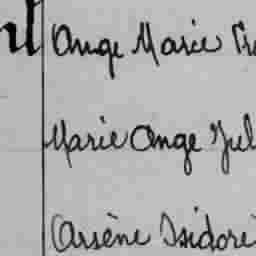 Ange Marie
Marie Ange Jul
Arsène Isidore